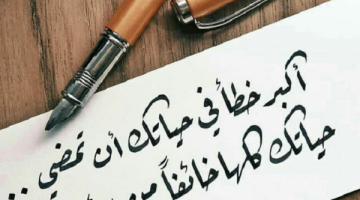 أكبر خطأ في حياتك أن تمضي
حياتك كلها خائفاً من ..